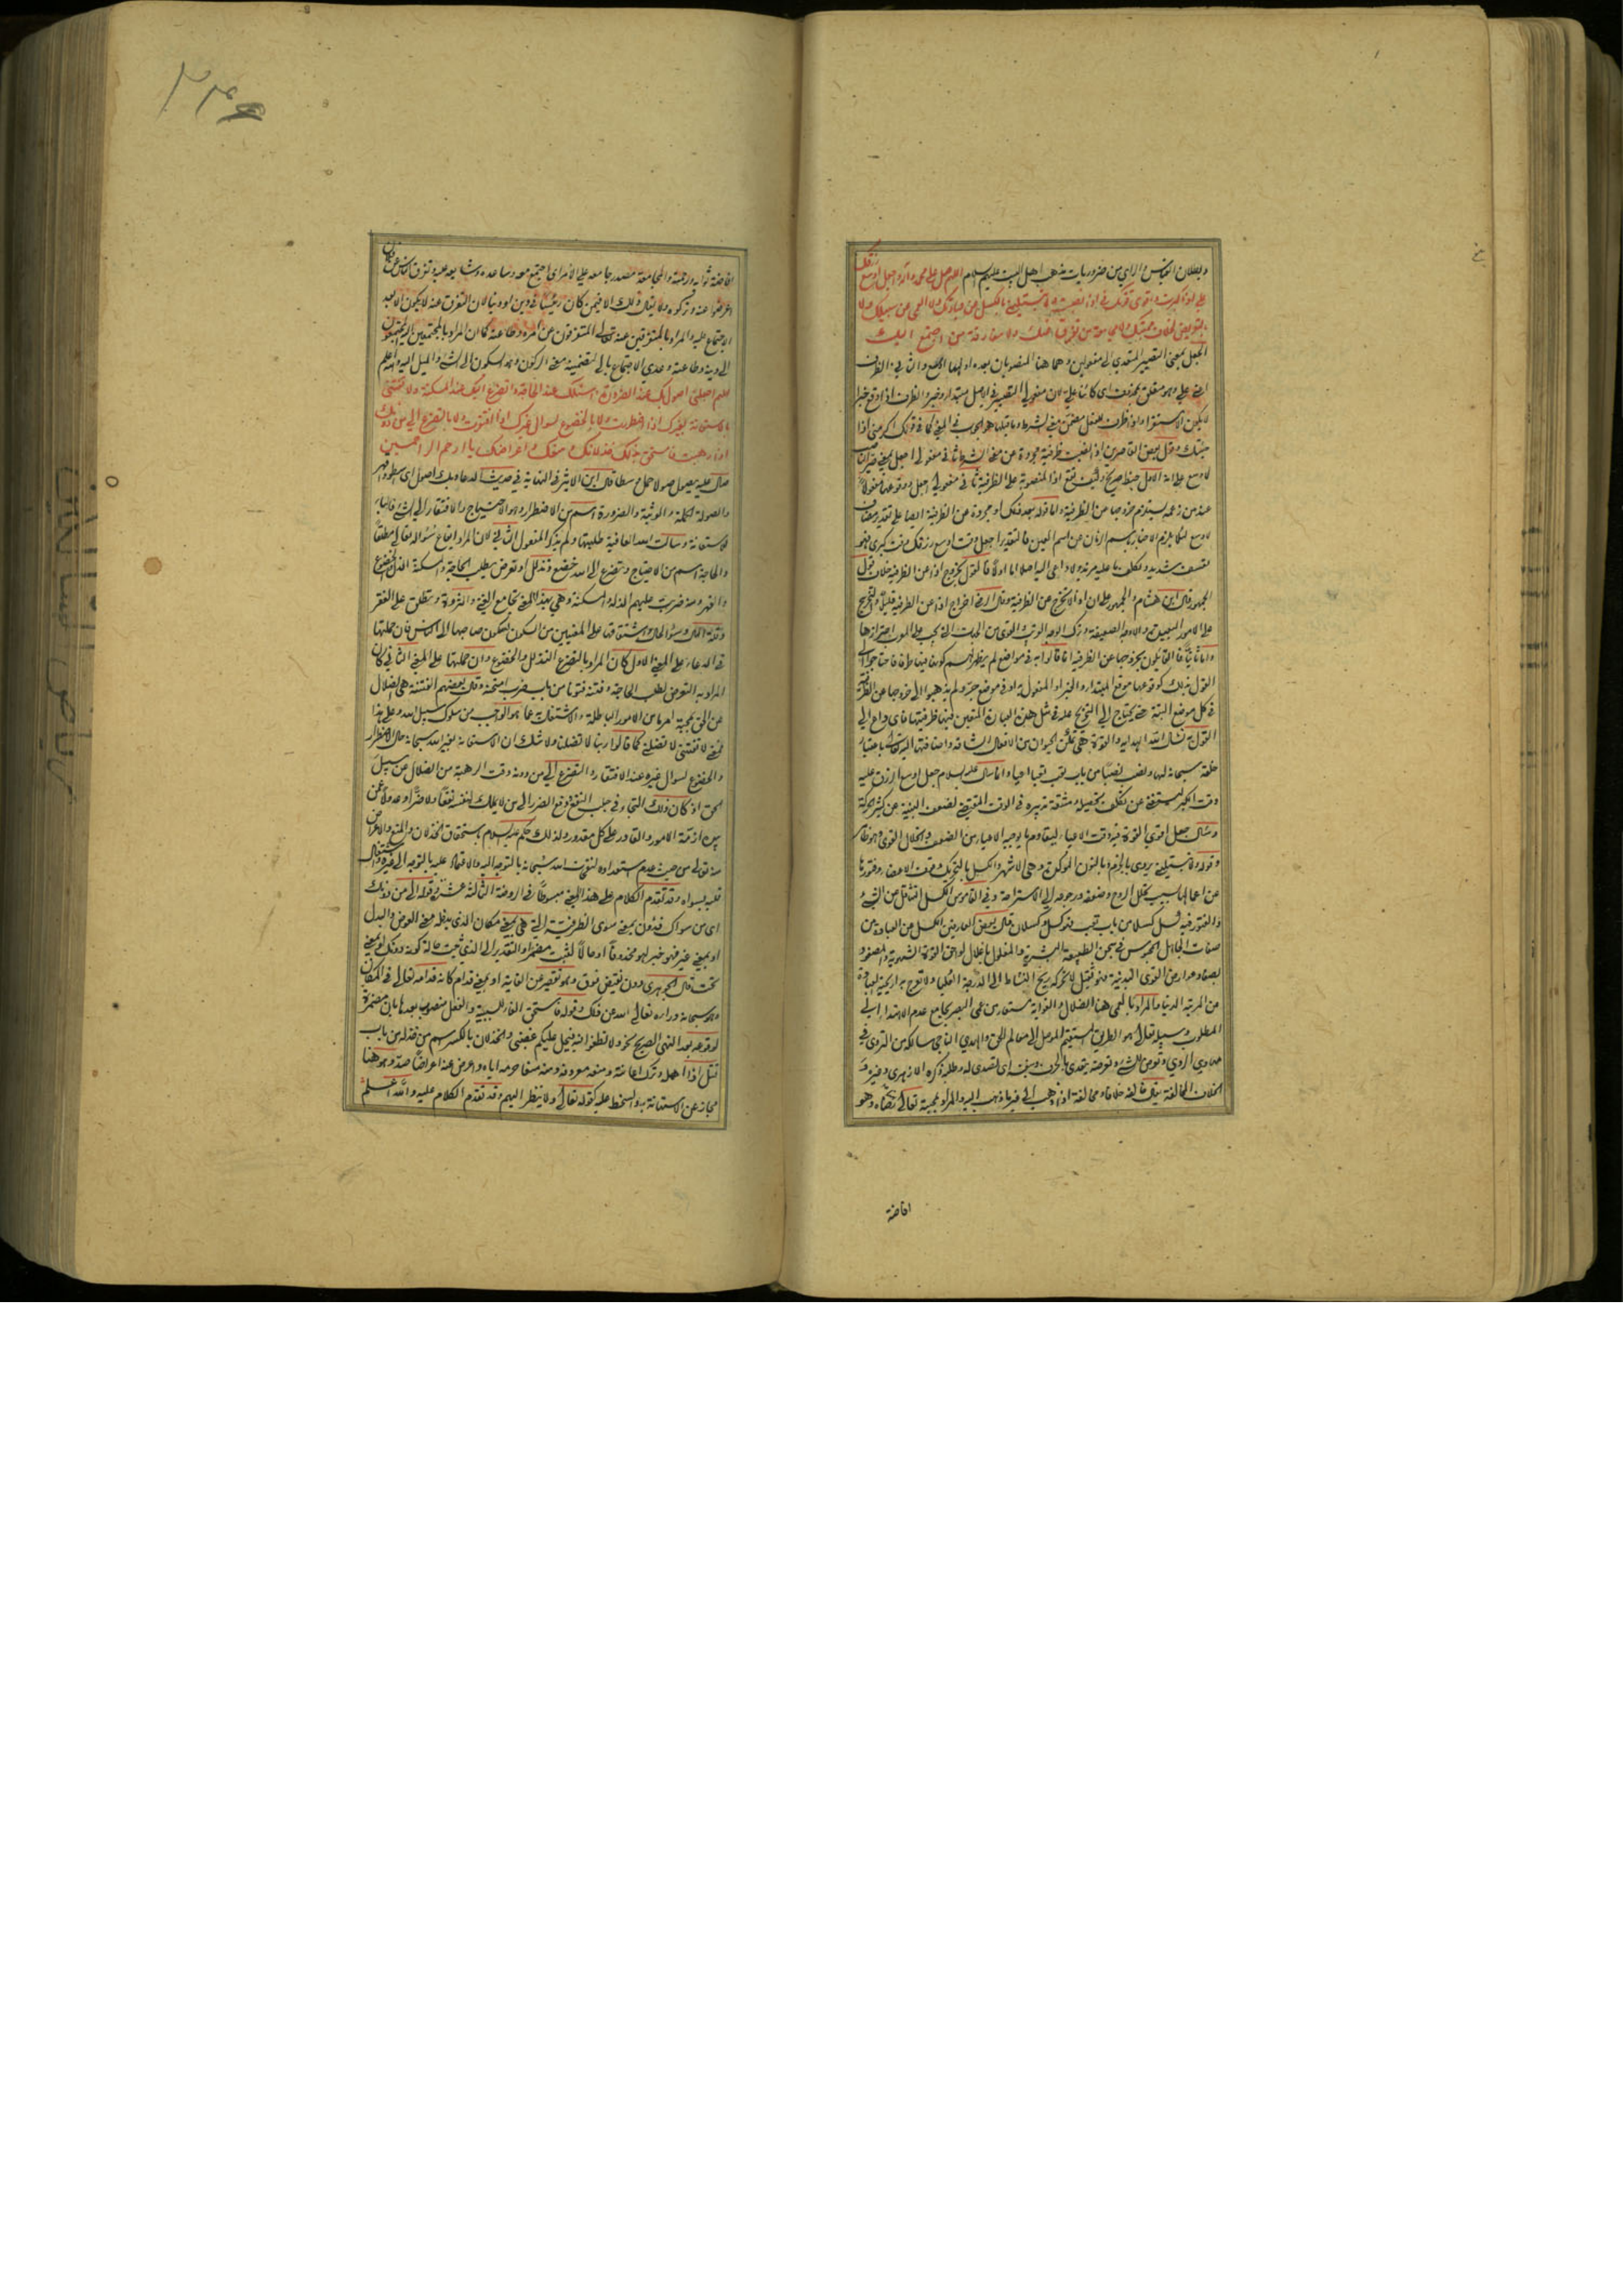 وبطلان القياس والرأي من ضروريات مذهب اهل البيت عليهم السلام اللهم صل على محمد وآله واجعل اوسع رزقك
علي اذا كبرت واقوى قوتك في اذا نصبت ولا تبتليني بالكسل عن عبادتك ولا العمى عن سبيلك ولا
بالتعرض لخلاف محبتك ولا مجامعة من تفرق عنك ولا مفارقة من اجتمع اليك
الجعل بمعنى التصيير المتعدي الى مفعولين وهما هنا المنصوبان بعده اولهما اوسع والثاني الظرف
اعني علي وهو متعلق بمحذوف اي كائنا علي لان مفعولي التصيير في الاصل مبتدا وخبر والظرف اذا وقع خبرا
لا يكون الا مستقرا واذا ظرف للمستقبل مضمن معنى الشرط وما قبلها هو الجواب في المعنى كما في قولك اكرمني اذا
جئتك وقول بعض القاصرين اذ النصبت ظرفية مجردة عن معنى الشرط ثاني مفعولي اجعل بمعنى صير ان
عنه من زعمه يستلزم خروجها عن الظرفية واما قوله بعد ذلك او مجردة عن الظرفية ايضا على تقدير مضاف
لاوسع لئلا يلزم الاخبار باسم الزمان عن اسم العين فالتقدير اجعل وقت اوسع رزقك وقت كبري فهو
تعسف شديد وتكلف ما عليه مزيد ولا داعي اليه اصلا اما اولا فالقول بخروج اذا عن الظرفية خلاف قول
الجمهور قال ابن هشام والجمهور على ان اذا لا تخرج عن الظرفية وقال الرضي اخراج اذا عن الظرفية قليل والتخريج
على الامور البعيدة والاوجه الضعيفة وترك الوجه القريب القوي من الجهات التي يجب على المعرب احترازها
واما ثانيا فالقائلون بخروجها عن الظرفية انما قالوا به في مواضع لم يظهر لهم كونها فيها ظرفا فاحتاجوا الى
القول بذلك كوقوعها موقع المبتدا والخبر او المفعول به او في موضع جر ولم يذهبوا الى خروجها عن الظرفية
في كل موضع البتة حتى يحتاج الى التخريج عليه في مثل هذه العبارة المتعين فيها ظرفيتها فاي داع الى
القول به نسال الله الهداية والقوة هي تمكن الحيوان من الافعال الشاقة واضافتها اليه تعالى باعتبار
خلقه سبحانه لها ونصب نصبا من باب تعب تعبا اعيا وانما سال عليه السلام جعل اوسع الرزق عليه
وقت الكبر ليستغني عن تكلف تحصيله ومشقة تدبيره في الوقت المقتضي لضعف البنية عن كثير الحركة
وسال جعل اقوى القوة فيه وقت الاعياء ليقاوم ما يوجبه الاعياء من الضعف وانحلال القوى وهو ظاهر
وقوله ولا تبتليني يروى بالجزم وبالنون المؤكدة وهي الاشهر والكسل بالتحريك فترة الاعضاء وفتورها
عن اعمالها بسبب تحلل الروح وضعفه ورجوعه الى الاستراحة وفي القاموس الكسل التثاقل عن الشيء
والفتور فيه وكسل كسلا من باب تعب فهو كسل وكسلان قال بعض العارفين الكسل عن العبادة من
صفات الجاهل المحبوس في سجن الطبيعة البشرية والمغلول باغلال لواحق القوة الشهوية والمصفود
بصفاد عوارض القوى البدنية فهو ثقيل لا تحركه ريح النشاط الى الدرجة العليا ولا تعرج به اريحية العبادة
عن المرتبة الدنيا والمراد بالعمى هنا الضلال والغواية مستعار من عمى البصر بجامع عدم الاهتداء الى
المطلوب وسبيله تعالى هو الطريق المستقيم الموصل الى معالم الحق والهدى الناجي سالكه من التردي في
مهاوي الردى وتعرض للشيء وتعرضه يتعدى بالحرف وبنفسه اي تصدى له وطلبه ذكره الازهري وغيره و
الخلاف المخالفة يقال خالفه خلافا ومخالفة اذا ذهب الى غير ما ذهب اليه والمراد بمحبته تعالى رضاه وهو
افاضة
افاضة ثوابه ورحمته والمجامعة مصدر جامعه على الامر اي اجتمع معه وساعده وشايعه عليه وتفرق الناس عن فلان
اعرضوا عنه وتركوه ولا يقال ذلك الا فيمن كان رئيسا في دين او دنيا لان التفرق عنه لا يكون الا بعد
الاجتماع عليه والمراد بالمتفرقين عنه تعالى المتفرقون عن امره وطاعته كما ان المراد بالمجتمعين اليه المجتمعون
الى دينه وطاعته وعدي الاجتماع بالى لتضمينه معنى الركون وهو السكون الى الشيء والميل اليه والله اعلم
اللهم اجعلني اصول بك عند الضرورة واسئلك عند الحاجة واتضرع اليك عند المسكنة ولا تفتني
بالاستعانة بغيرك اذا اضطررت ولا بالخضوع لسوال غيرك اذا افتقرت ولا بالتضرع الى من دونك
اذا رهبت فاستحق بذلك خذلانك ومنعك واعراضك يا ارحم الراحمين
صال عليه يصول صولا حمل وسطا قال ابن الاثير في النهاية في حديث الدعاء وبك اصول اي اسطو واقهر
والصولة الحملة والوثبة والضرورة اسم من الاضطرار وهو الاحتياج والافتقار الى الشيء
الاستعانة وسالت الله العافية طلبتها ولم يذكر المفعول الثاني لان المراد ايقاع سؤاله تعالى مطلقا
والحاجة اسم من الاحتياج وتضرع الى الله خضع وتذلل او تعرض يطلب الحاجة والمسكنة الذل والخضوع
والقهر ومنه ضربت عليهم الذلة والمسكنة وهي بهذا المعنى تجامع الغنى والثروة وتطلق على الفقر
وقلة المال وسوء الحال واشتقاقها على المعنيين من السكون لسكون صاحبها الى الناس فان حملتها
في الدعاء على المعنى الاول كان المراد بالتضرع التذلل والخضوع وان حملتها على المعنى الثاني كان
المراد به التعرض لطلب الحاجة وفتنه فتونا من باب ضرب امتحنه وقال بعضهم الفتنة هي الضلال
عن الحق بمحبة امر ما من الامور الباطلة والاشتغال به عما هو الواجب من سلوك سبيل الله وعلى هذا
فمعنى لا تفتني لا تضلني كما قالوا ربنا لا تضلنا ولا شك ان الاستعانة بغير الله سبحانه حال الاضطرار
والخضوع لسوال غيره عند الافتقار والتضرع الى من دونه وقت الرهبة من الضلال عن سبيل
الحق اذ كان ذلك التجاء في جلب النفع ودفع الضرر الى من لا يملك لنفسه نفعا ولا ضرا وعدولا عمن
بيده ازمة الامور والقادر على كل مقدور ولذلك حكم عليه السلام باستحقاق الخذلان والمنع والاعراض
منه تعالى من حيث عدم استعداده لنفحات الله سبحانه بالتوجه اليه والاقبال عليه بالتوجه الى غيره واشتغال
قلبه بسواه وقد تقدم الكلام على هذا المعنى مبسوطا في الروضة الثالثة عشر وقوله الى من دونك
اي من سواك فدون بمعنى سوى الظرفية التي هي بمعنى مكان الذي يدخله معنى العوض والبدل
او بمعنى غير فهو خبر لهو محذوفا او حالا لثبت مضمرا والتقدير الى الذي ثبت حالة كونه دونك او بمعنى
تحت قال الجوهري دون نقيض فوق وهو تقصير عن الغاية او بمعنى قدام كانه قدامه تعالى في المكان
وهو سبحانه وراءه تعالى الله عن ذلك وقوله فاستحق الفاء للسببية والفعل منصوب بعدها بان مضمرة
لوقوعه بعد النهي الصريح نحو ولا تطغوا فيه فيحل عليكم غضبي والخذلان بالكسر اسم من خذله من باب
قتل اذا اهمله وترك اعانته ومنعه معروفه ومنه منعا حرمه اياه واعرض عنه اعراضا صد وهو هنا
مجاز عن الاستهانة به والسخط عليه كقوله تعالى ولا ينظر اليهم وقد تقدم الكلام عليه والله اعلم